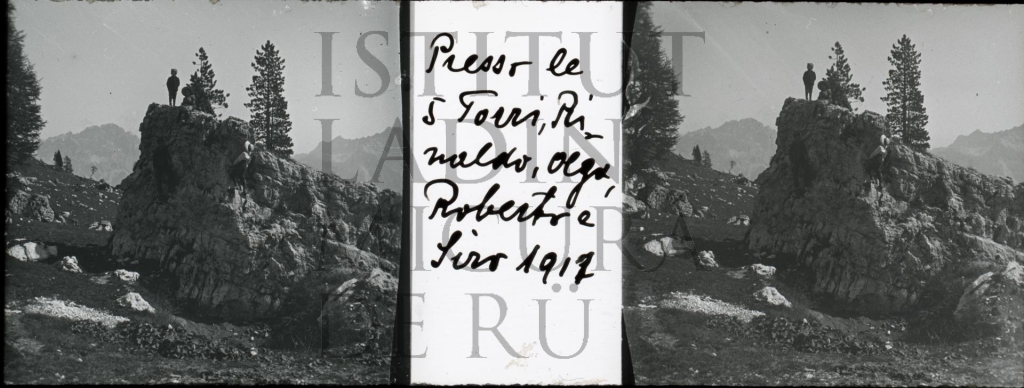 Presso le
5 Torri, Ri-
naldo, Olga,
Roberto e
Siro 1917
ISTITUT
LADIN
MICURÀ
DE RÜ